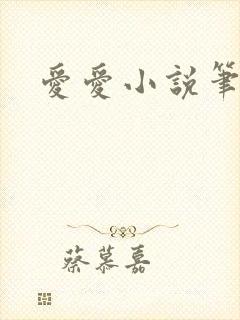 愛愛小說筆
蔡慕嘉